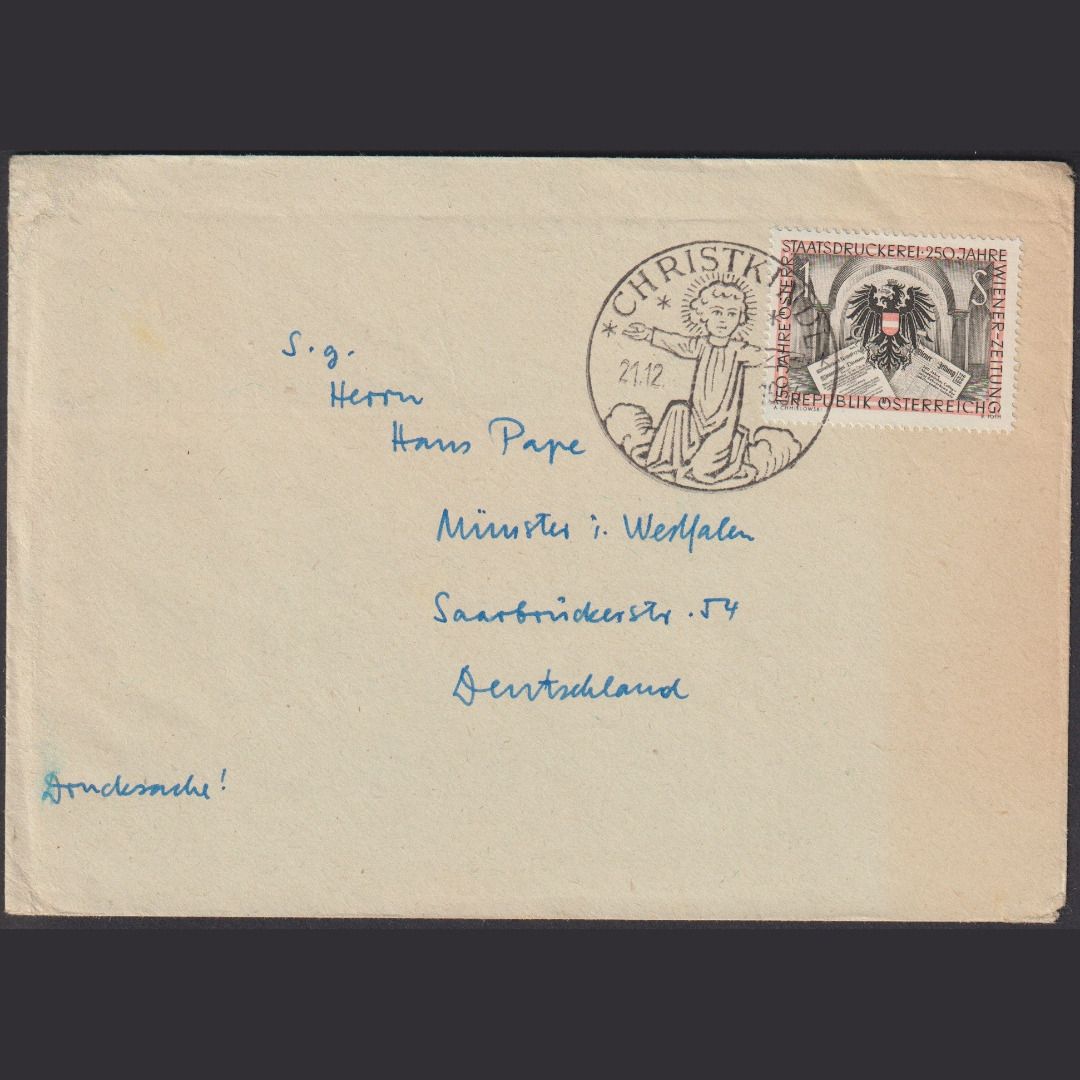 * CHRISTKINDL *
21.12.
150 JAHRE ÖSTERR. STAATSDRUCKEREI · 250 JAHRE WIENER-ZEITUNG
1 S
REPUBLIK ÖSTERREICH
A. CHMIELOWSKI
S. g.
Herrn
Hans Pape
Münster i. Westfalen
Saarbrückerstr. 54
Deutschland
Drucksache!